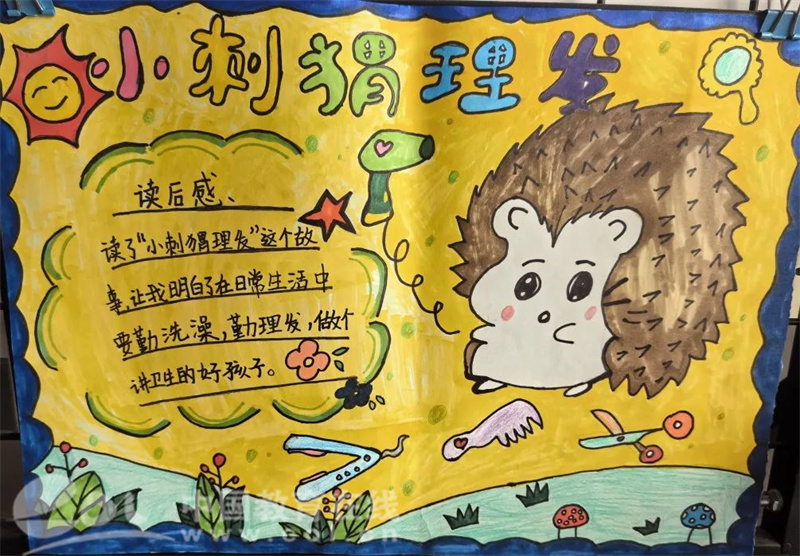 小刺猬理发
读后感、
读了“小刺猬理发”这个故
事，让我明白了在日常生活中
要勤洗澡，勤理发，做个
讲卫生的好孩子。
中国教育在线